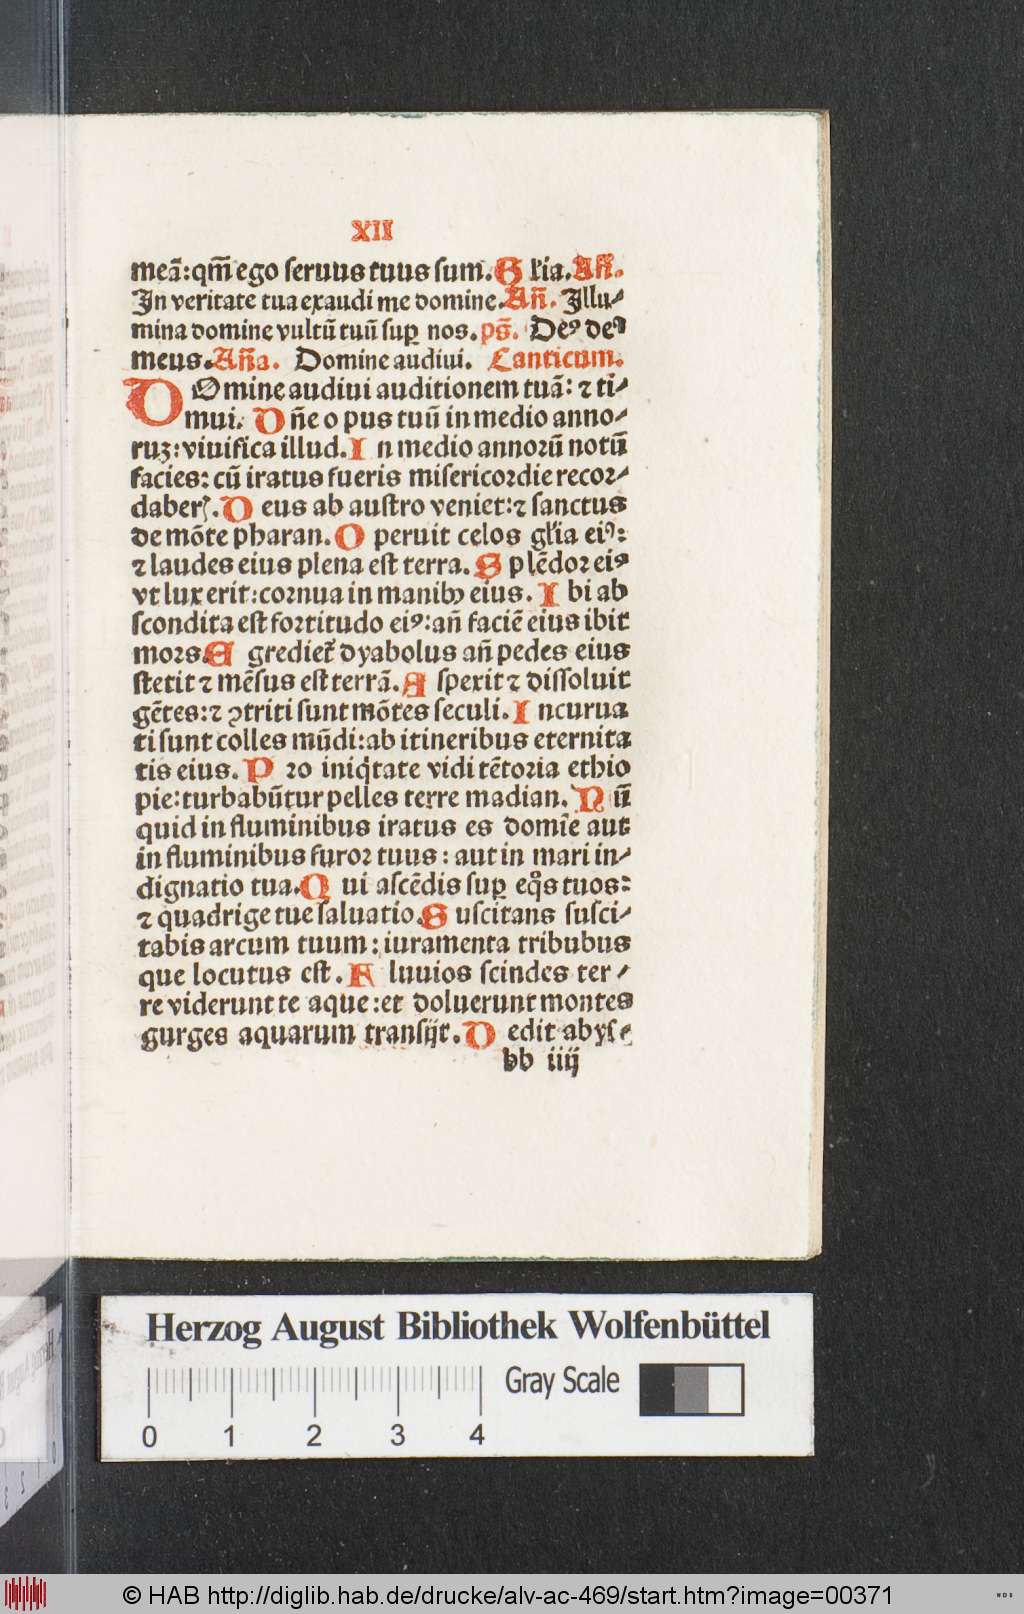 XII
meā:qm̄ ego seruus tuus sum. Gl'ia. Añ.
In veritate tua exaudi me domine. Añ. Illu⸗
mina domine vultū tuū sup̱ nos. ps̄. Deꝰ deꝰ
meus. Aña. Domine audiui. Canticum.
DOmine audiui auditionem tuā: ⁊ ti⸗
mui. Dñe opus tuū in medio anno⸗
ruꝫ: viuifica illud. In medio annorū notū
facies: cū iratus fueris misericordie recor⸗
daberꝭ. Deus ab austro veniet: ⁊ sanctus
de mōte pharan. Operuit celos gl'ia eiꝰ:
⁊ laudes eius plena est terra. Splēdor eiꝰ
vt lux erit: cornua in manibꝰ eius. Ibi ab
scondita est fortitudo eiꝰ: añ faciē eius ibit
mors. Egrediet̉ dyabolus añ pedes eius
stetit ⁊ mēsus est terrā. Aspexit ⁊ dissoluit
gētes: ⁊ ꝯtriti sunt mōtes seculi. Incurua
ti sunt colles mūdi: ab itineribus eternita
tis eius. Pro iniqͥtate vidi tētoria ethio
pie: turbabūtur pelles terre madian. Nū
quid in fluminibus iratus es domīe aut
in fluminibus furor tuus: aut in mari in⸗
dignatio tua. Qui ascēdis sup̱ eqͦs tuos:
⁊ quadrige tue saluatio. Suscitans susci⸗
tabis arcum tuum: iuramenta tribubus
que locutus est. Fluuios scindes ter⸗
re viderunt te aque: et doluerunt montes
gurges aquarum transijt. Dedit abys⸗
bb iiij
Herzog August Bibliothek Wolfenbüttel
Gray Scale
0 1 2 3 4
© HAB http://diglib.hab.de/drucke/alv-ac-469/start.htm?image=00371